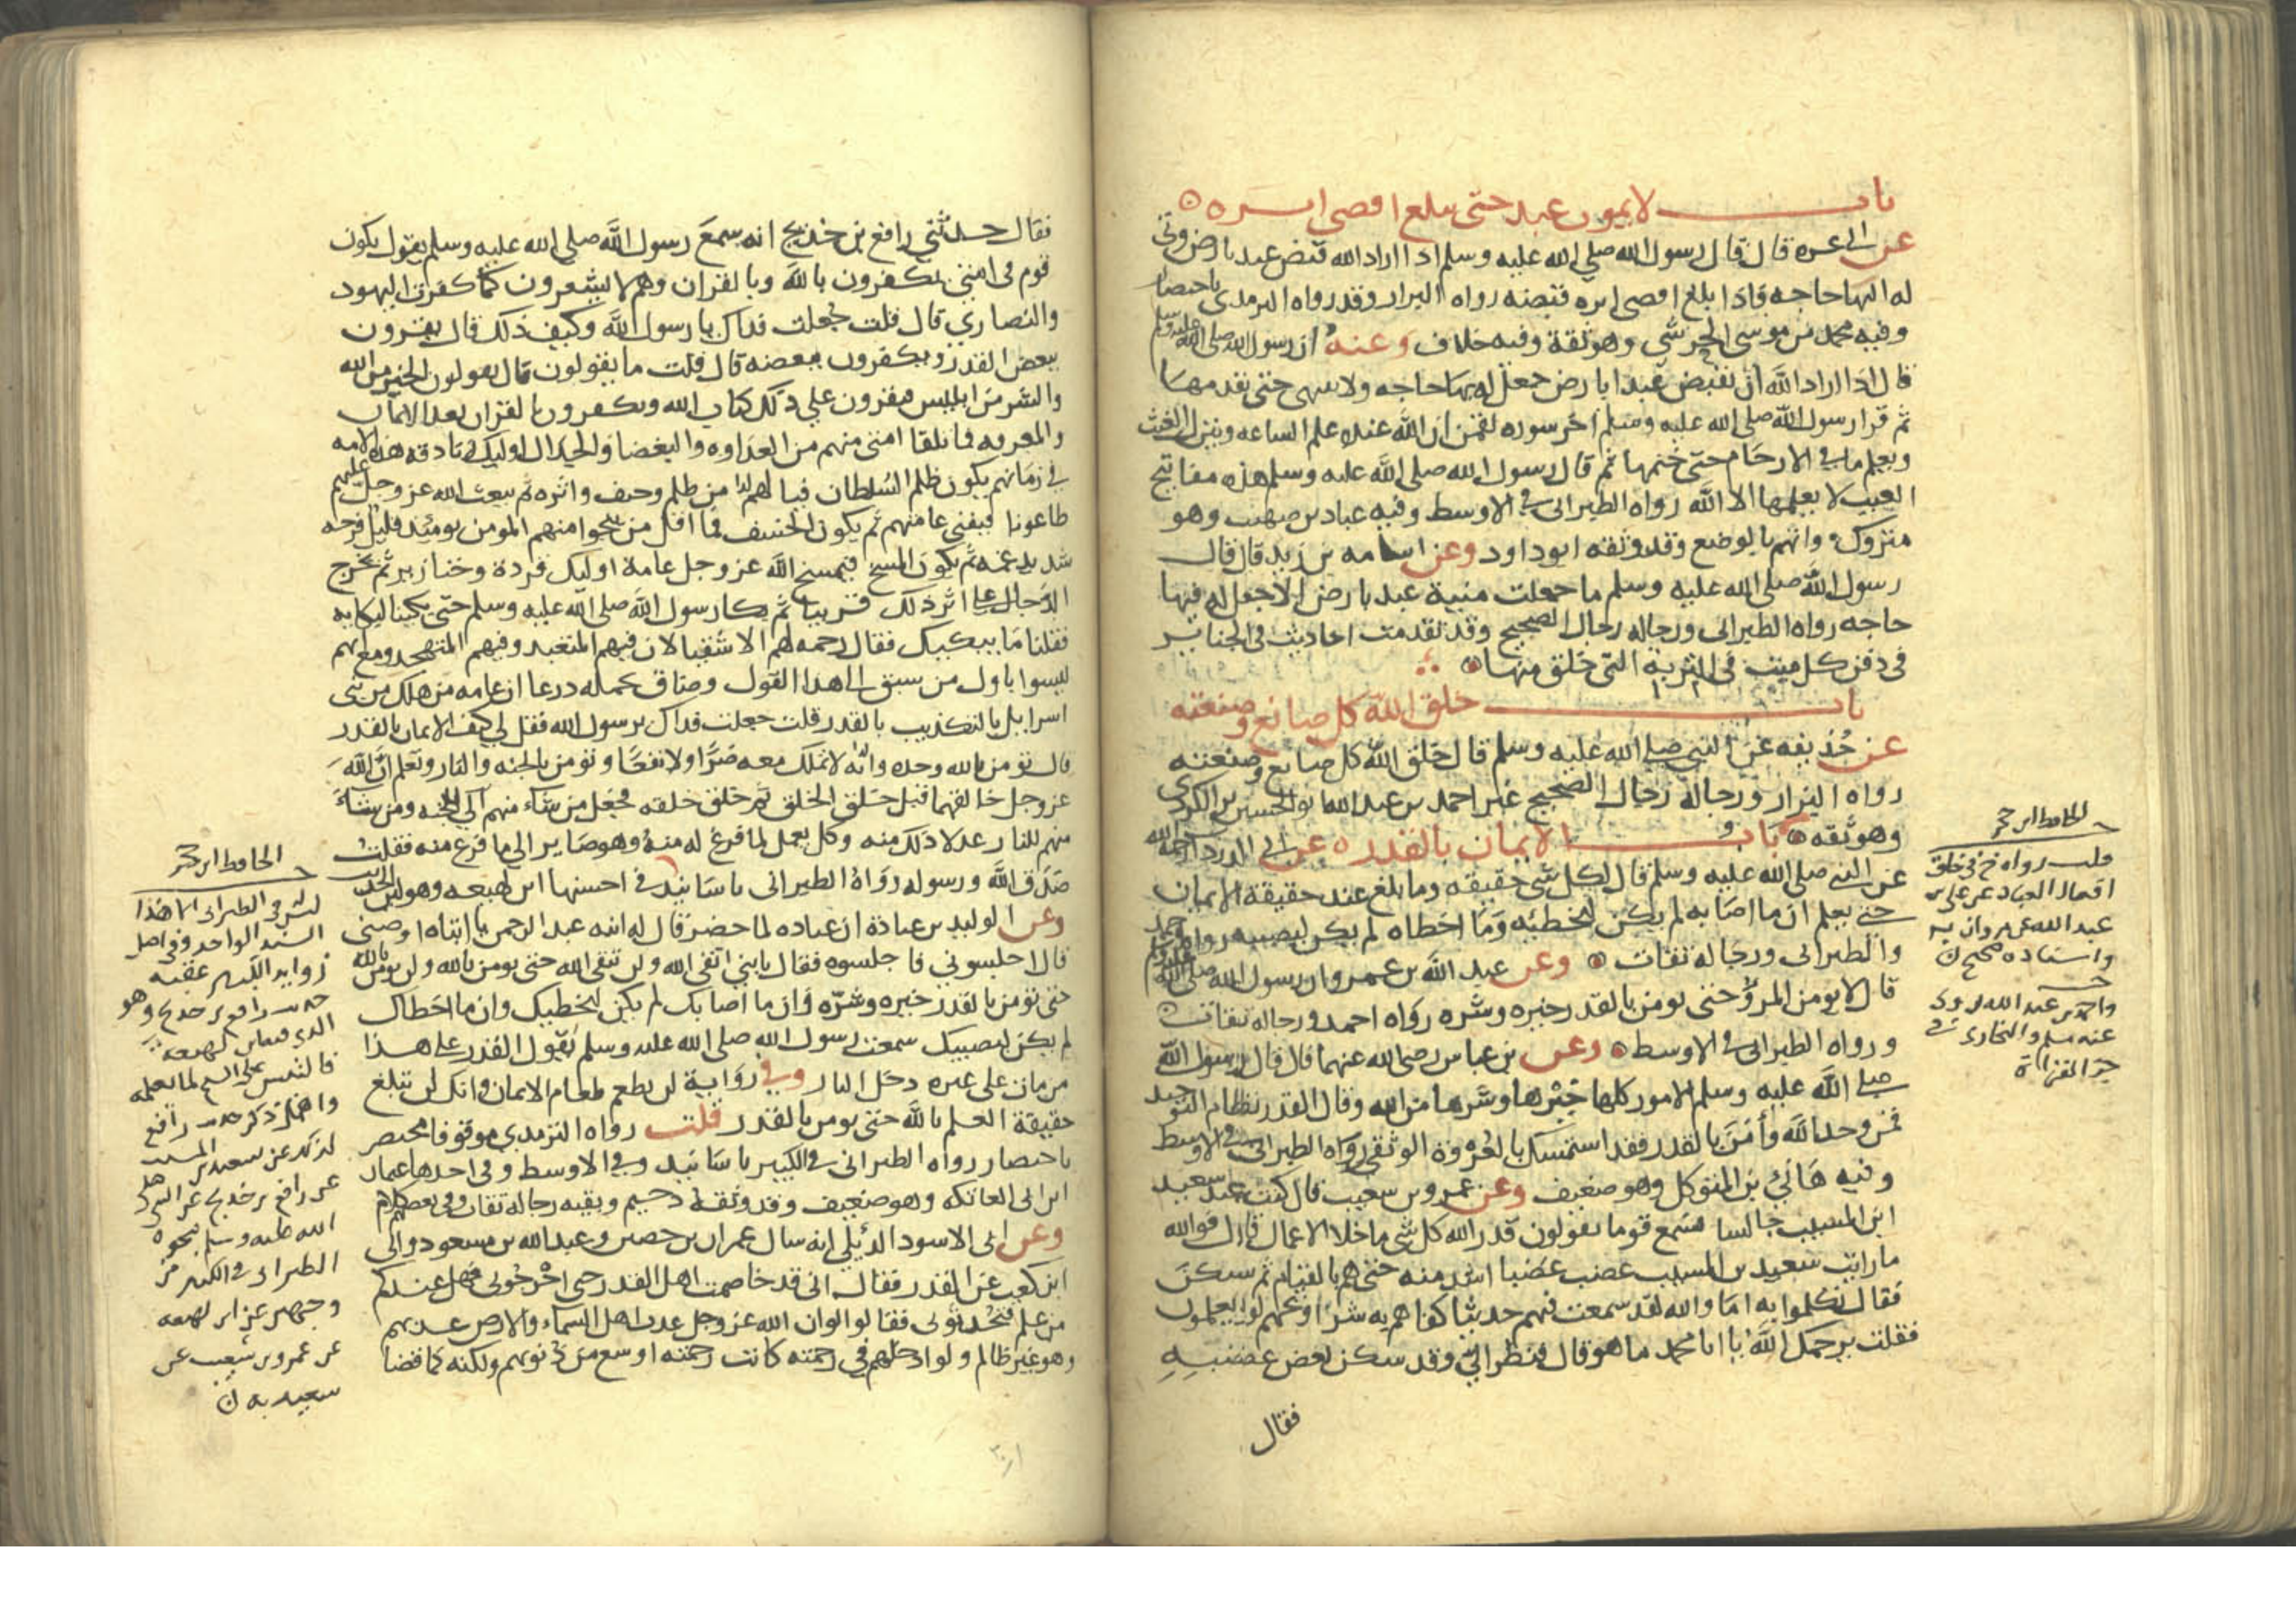 باب لا يموت عبد حتى يبلغ اقصى اثره
عن ابي عزه قال قال رسول الله صلى الله عليه وسلم اذا اراد الله قبض عبد بارض وثى
له اليها حاجه فاذا بلغ اقصى اثره قبضه رواه البزار وقد رواه الترمدي باختصار
وفيه محمد بن موسى الحرشي وهو ثقة وفيه خلاف وعنه ان رسول الله صلى الله عليه وسلم
قال اذا اراد الله ان يقبض عبدا بارض جعل له بها حاجه ولا ينتهي حتى يقدمها
ثم قرا رسول الله صلى الله عليه وسلم اخر سوره لقمن ان الله عنده علم الساعه وينزل الغيث
ويعلم ما في الارحام حتى ختمها ثم قال رسول الله صلى الله عليه وسلم هذه مفاتيح
الغيب لا يعلمها الا الله رواه الطبراني في الاوسط وفيه عباد بن صهيب وهو
متروك واتهم بالوضع وقد وثقه ابو داود وعن اسامه بن زيد قال قال
رسول الله صلى الله عليه وسلم ما جعلت منية عبد بارض الا جعل له فيها
حاجه رواه الطبراني ورجاله رجال الصحيح وقد تقدمت احاديث في الجنائز
في دفن كل ميت في التربة التي خلق منها
باب خلق الله كل صانع وصنعته
عن حذيفه عن النبي صلى الله عليه وسلم قال خلق الله كل صانع وصنعته
رواه البزار ورجاله رجال الصحيح غير احمد بن عبد الله ابو الحسين بن الكردي
وهو ثقه باب الايمان بالقدر عن ابي الدردا رحمه الله
عن النبي صلى الله عليه وسلم قال لكل شي حقيقه وما بلغ عبد حقيقة الايمان
حتى يعلم ان ما اصابه لم يكن ليخطئه وما اخطاه لم يكن ليصيبه رواه احمد
والطبراني ورجاله ثقات وعن عبد الله بن عمرو ان رسول الله صلى الله عليه وسلم
قال لا يومن المرؤ حتى يومن بالقدر خيره وشره رواه احمد ورجاله ثقات
ورواه الطبراني في الاوسط وعن بن عباس رضي الله عنهما قال قال رسول الله
صلى الله عليه وسلم الامور كلها خيرها وشرها من الله وقال القدر نظام التوحيد
فمن وحد الله وامن بالقدر فقد استمسك بالعروة الوثقى رواه الطبراني في الاوسط
وفيه هاني بن المتوكل وهو ضعيف وعن عمرو بن شعيب قال كنت عند سعيد
ابن المسيب جالسا فسمع قوما يقولون قدر الله كل شي ما خلا الاعمال قال فوالله
ما رايت سعيد بن المسيب غضب غضبا اشد منه حتى هم بالقيام ثم سكن
فقال تكلموا به اما والله لقد سمعت فيهم حديثا كفاهم به شرا ويحهم لو يعلمون
فقلت يرحمك الله يا ابا محمد ما هو قال فنظر الي وقد سكن بعض غضبه
فقال
الحافظ ابن حجر
قلت رواه خ في خلق
افعال العباد عن علي بن
عبد الله عن مروان به
واسناده صحيح
واحمد بن عبد الله روى
عنه مسلم والبخاري في
جزء القراة
فقال حدثني رافع بن خديج انه سمع رسول الله صلى الله عليه وسلم يقول يكون
قوم في امتي يكفرون بالله وبالقران وهم لا يشعرون كما كفرت اليهود
والنصاري قال قلت جعلت فداك يا رسول الله وكيف ذلك قال يقرون
ببعض القدر ويكفرون ببعضه قال قلت ما يقولون قال يقولون الخير من الله
والشر من ابليس فيقرون علي ذلك كتاب الله ويكفرون بالقران بعد الايمان
والمعرفه فما تلقا امتي منهم من العداوه والبغضا والجدال اوليك زنادقه هذه الامه
في زمانهم يكون ظلم السلطان فيا لهم من ظلم وحيف واثره ثم يبعث الله عز وجل عليهم
طاعونا فيفني عامتهم ثم يكون الخسف فما اقل من ينجوا منهم المومن يومئذ قليل فرحه
شديد غمه ثم يكون المسخ فيمسخ الله عز وجل عامة اوليك قردة وخنازير ثم يخرج
الدجال علي اثر ذلك قريبا ثم بكا رسول الله صلى الله عليه وسلم حتى بكينا لبكايه
فقلنا ما يبكيك فقال رحمه لهم الاشقيا لان فيهم المتعبد وفيهم المتهجد ومع انهم
ليسوا باول من سبق الى هذا القول وضاق بحمله درعا ان عامه من هلك من بني
اسرايل بالتكذيب بالقدر قلت جعلت فداك يرسول الله فقل لي كيف الايمان بالقدر
قال تومن بالله وحده وانه لا تملك معه ضرا ولا نفعا وتومن بالجنه والنار وتعلم ان الله
عز وجل خالقهما قبل خلق الخلق ثم خلق خلقه فجعل من شاء منهم الي الجنه ومن شاء
منهم للنار عدلا ذلك منه وكل يعمل لما فرغ له منه وهو صاير الى ما فرغ منه فقلت
صدق الله ورسوله رواه الطبراني باسانيد في احسنها ابن لهيعه وهو لين الحديث
وعن الوليد بن عبادة ان عباده لما حضر قال له ابنه عبد الرحمن يا ابتاه اوصني
قال اجلسوني فاجلسوه فقال يا بني اتقي الله ولن تتقي الله حتى تومن بالله ولن تومن بالله
حتى تومن بالقدر خيره وشره وان ما اصابك لم يكن ليخطيك وان ما اخطاك
لم يكن ليصيبك سمعت رسول الله صلى الله عليه وسلم يقول القدر على هذا
من مات على غيره دخل النار وفي رواية لن تطعم طعام الايمان وانك لن تبلغ
حقيقة العلم بالله حتى تومن بالقدر قلت رواه الترمدي موقوفا مختصر
باختصار رواه الطبراني في الكبير باسانيد وفي الاوسط وفي احدها عثمان
ابن ابي العاتكه وهو ضعيف وقد وثقه دحيم وبقيه رجاله ثقات وفي بعضهم كلام
وعن ابي الاسود الدئلي انه سال عمران بن حصين وعبد الله بن مسعود وابي
ابن كعب عن القدر فقال اني قد خاصمت اهل القدر حتى اخرجوني فهل عندكم
من علم فتحدثوني فقالوا لو ان الله عز وجل عذب اهل السماء والارض عذبهم
وهو غير ظالم ولو ادخلهم في رحمته كانت رحمته اوسع من ذنوبهم ولكنه كما قضا
الحافظ ابن حجر
ليس في الطبراني الا هذا
السند الواحد وفي اصل
زوايد الكبير عقبه
حديث رافع بن خديج وهو
الذي فيه ابن لهيعه
فالتبس على الشيخ لما نقله
رافع
عن سعيد بن المسيب
عن رافع بن خديج عن النبي صلى
الله عليه وسلم نحوه
الطبراني في الكبير من
وجهين عن ابن لهيعه
عن عمرو بن شعيب عن
سعيد به